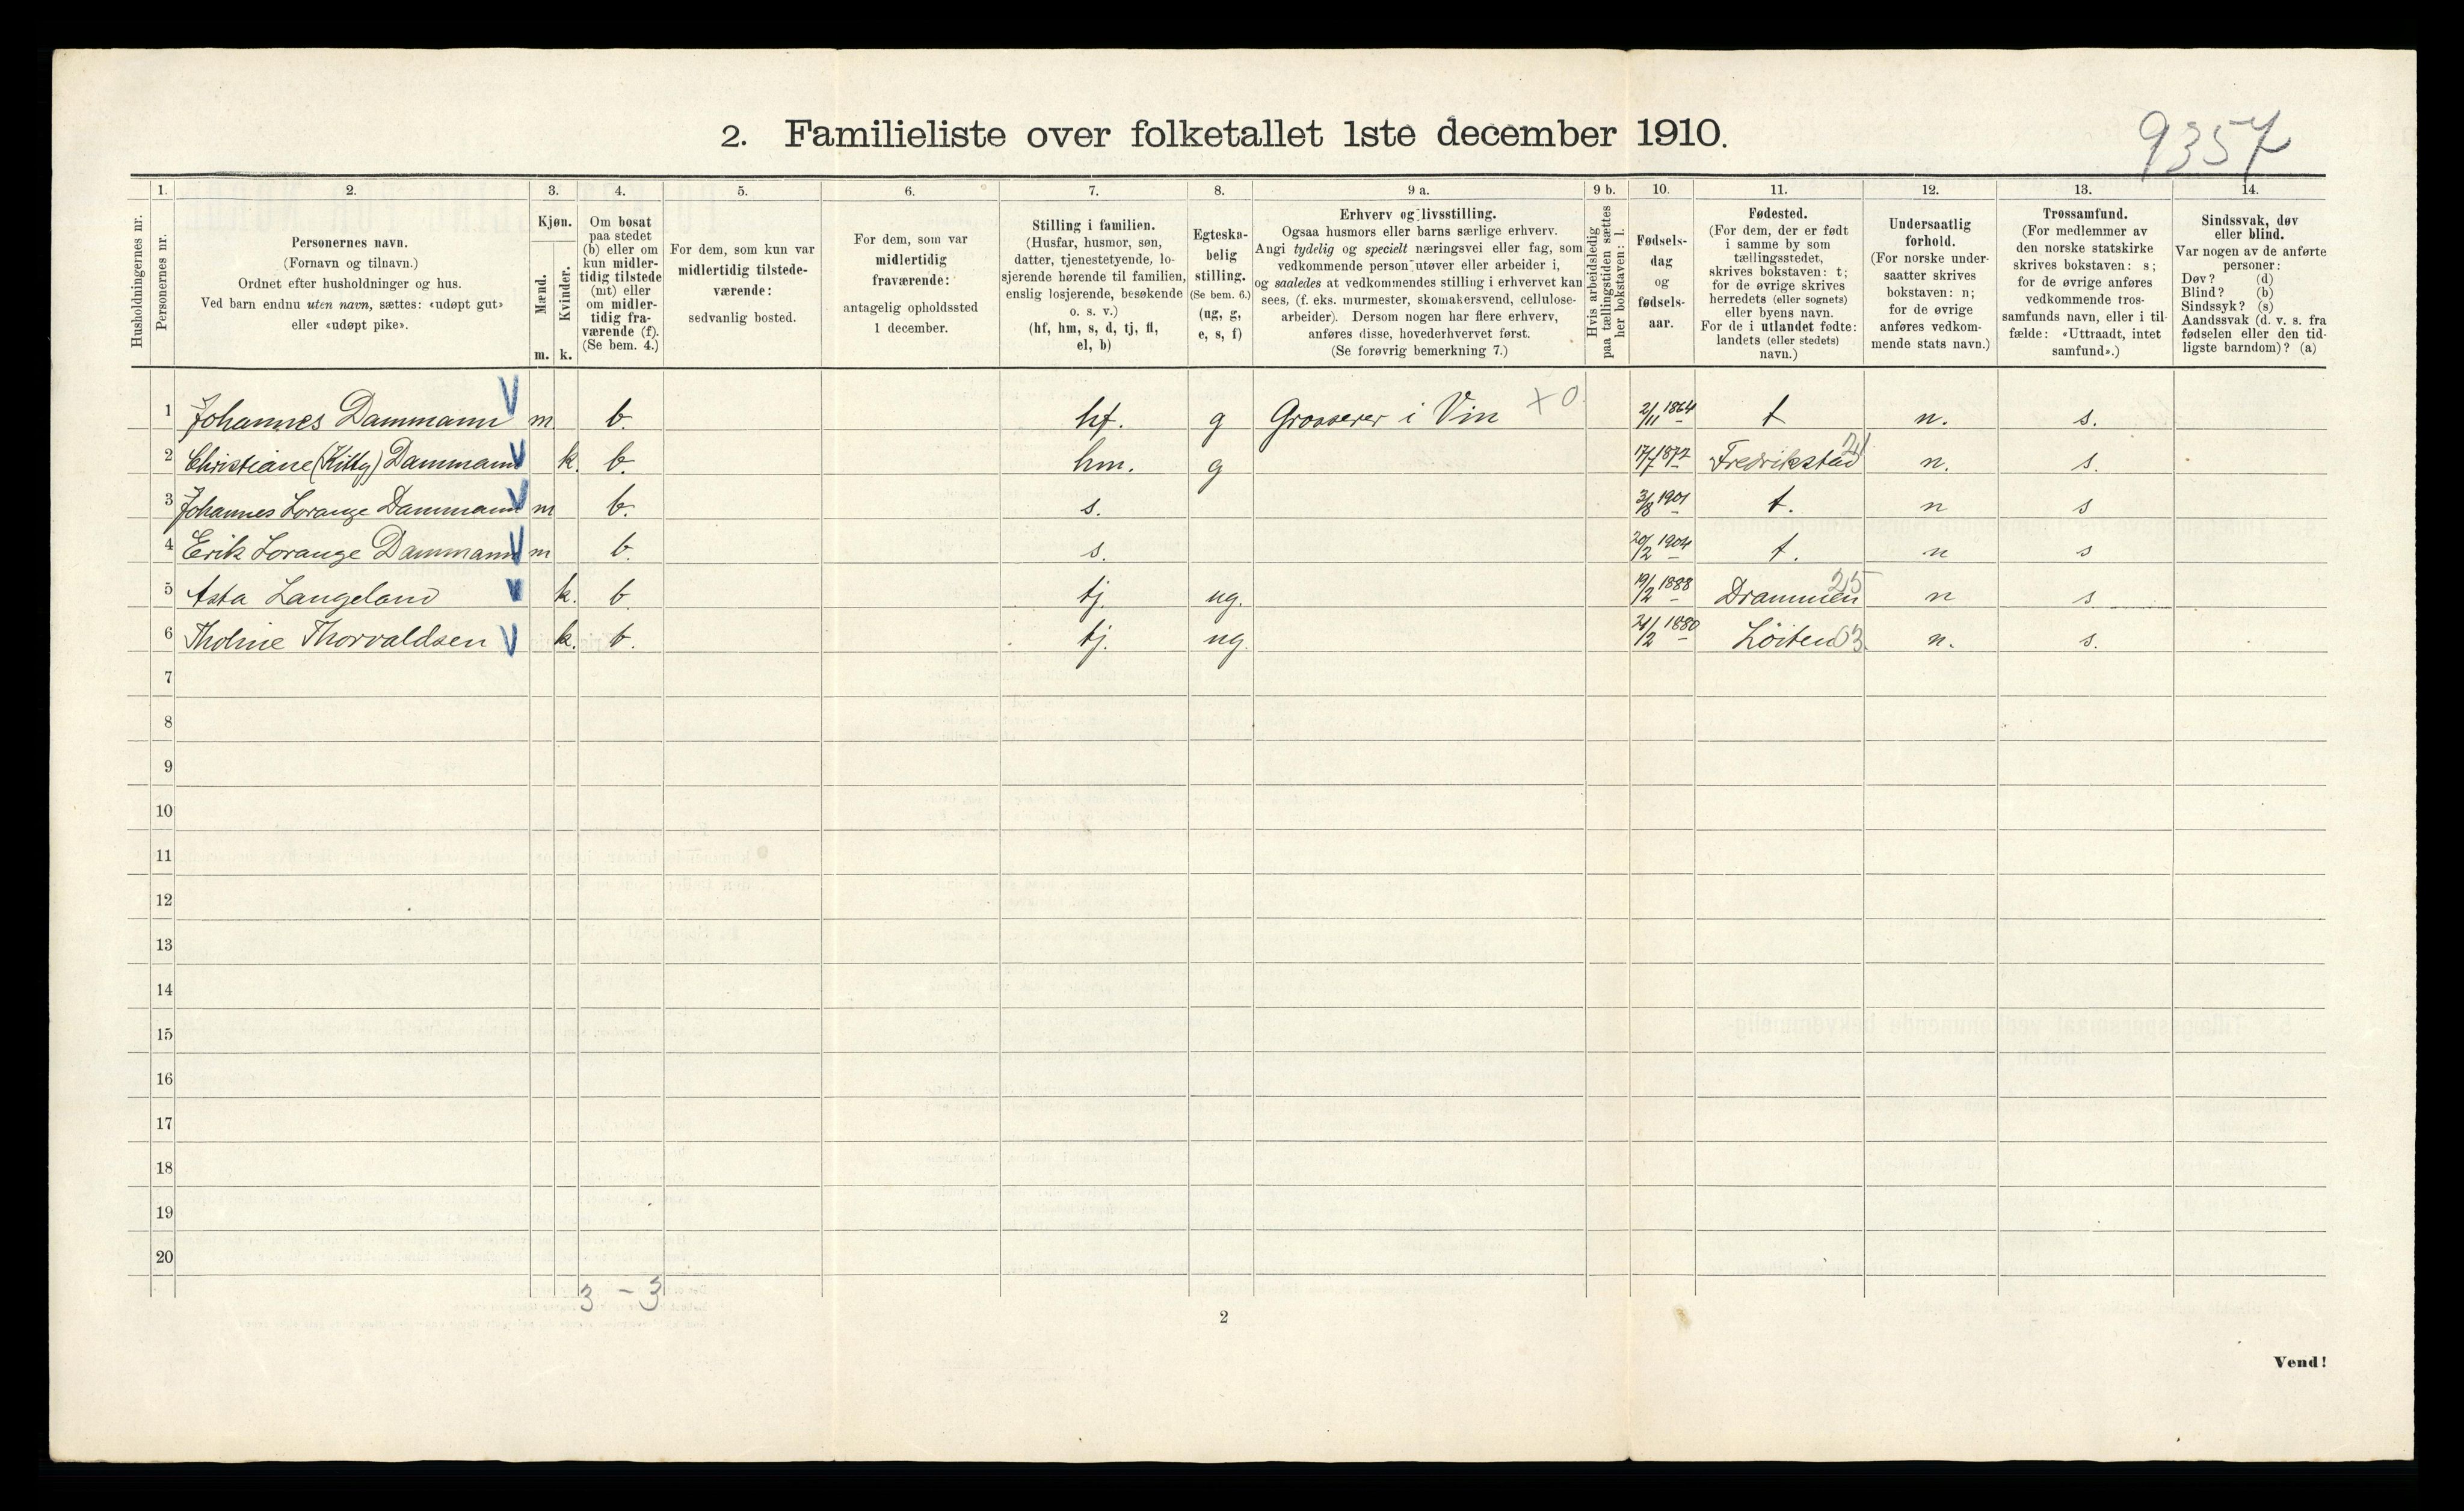 2. Familieliste over folketallet 1ste december 1910.
9357
1. 2. 3. 4. 5. 6. 7. 8. 9 a. 9 b. 10. 11. 12. 13. 14.
Husholdningernes nr.
Personernes nr.
Personernes navn.
(Fornavn og tilnavn.)
Ordnet efter husholdninger og hus.
Ved barn endnu uten navn, sættes: «udøpt gut»
eller «udøpt pike».
Kjøn.
Mænd.
Kvinder.
m. k.
Om bosat
paa stedet
(b) eller om
kun midler-
tidig tilstede
(mt) eller
om midler-
tidig fra-
værende (f).
(Se bem. 4.)
For dem, som kun var
midlertidig tilstede-
værende:
sedvanlig bosted.
For dem, som var
midlertidig
fraværende:
antagelig opholdssted
1 december.
Stilling i familien.
(Husfar, husmor, søn,
datter, tjenestetyende, lo-
sjerende hørende til familien,
enslig losjerende, besøkende
o. s. v.)
(hf, hm, s, d, tj, fl,
el, b)
Egteska-
belig
stilling.
(Se bem. 6.)
(ug, g,
e, s, f)
Erhverv og livsstilling.
Ogsaa husmors eller barns særlige erhverv.
Angi tydelig og specielt næringsvei eller fag, som
vedkommende person utøver eller arbeider i,
og saaledes at vedkommendes stilling i erhvervet kan
sees, (f. eks. murmester, skomakersvend, cellulose-
arbeider). Dersom nogen har flere erhverv,
anføres disse, hovederhvervet først.
(Se forøvrig bemerkning 7.)
Hvis arbeidsledig
paa tællingstiden sættes
her bokstaven: l.
Fødsels-
dag
og
fødsels-
aar.
Fødested.
(For dem, der er født
i samme by som
tællingsstedet,
skrives bokstaven: t;
for de øvrige skrives
herredets (eller sognets)
eller byens navn.
For de i utlandet fødte:
landets (eller stedets)
navn.)
Undersaatlig
forhold.
(For norske under-
saatter skrives
bokstaven: n;
for de øvrige
anføres vedkom-
mende stats navn.)
Trossamfund.
(For medlemmer av
den norske statskirke
skrives bokstaven: s;
for de øvrige anføres
vedkommende tros-
samfunds navn, eller i til-
fælde: «Uttraadt, intet
samfund».)
Sindssvak, døv
eller blind.
Var nogen av de anførte
personer:
Døv? (d)
Blind? (b)
Sindssyk? (s)
Aandssvak (d. v. s. fra
fødselen eller den tid-
ligste barndom)? (a)
1 Johannes Dammann V m b. hf. g Grosserer i Vin x 0 2/11 1864 t n. s.
2 Christiane (Kitty) Dammann V k. b. hm. g 17/7 1872 Fredrikstad n. s.
3 Johannes Lorange Dammann V m b. s. 3/8 1901 t. n s
4 Erik Lorange Dammann V m b. s. 20/2 1904 t. n s
5 Asta Langeland V k. b tj. ug. 19/2 1888 Drammen 25 n s
6 Tholine Thorvaldsen V k. b. tj. ug. 1880 Löiten 03 n. s.
7
8
9
10
11
12
13
14
15
16
17
18
19
20
3 - 3
2
Vend!